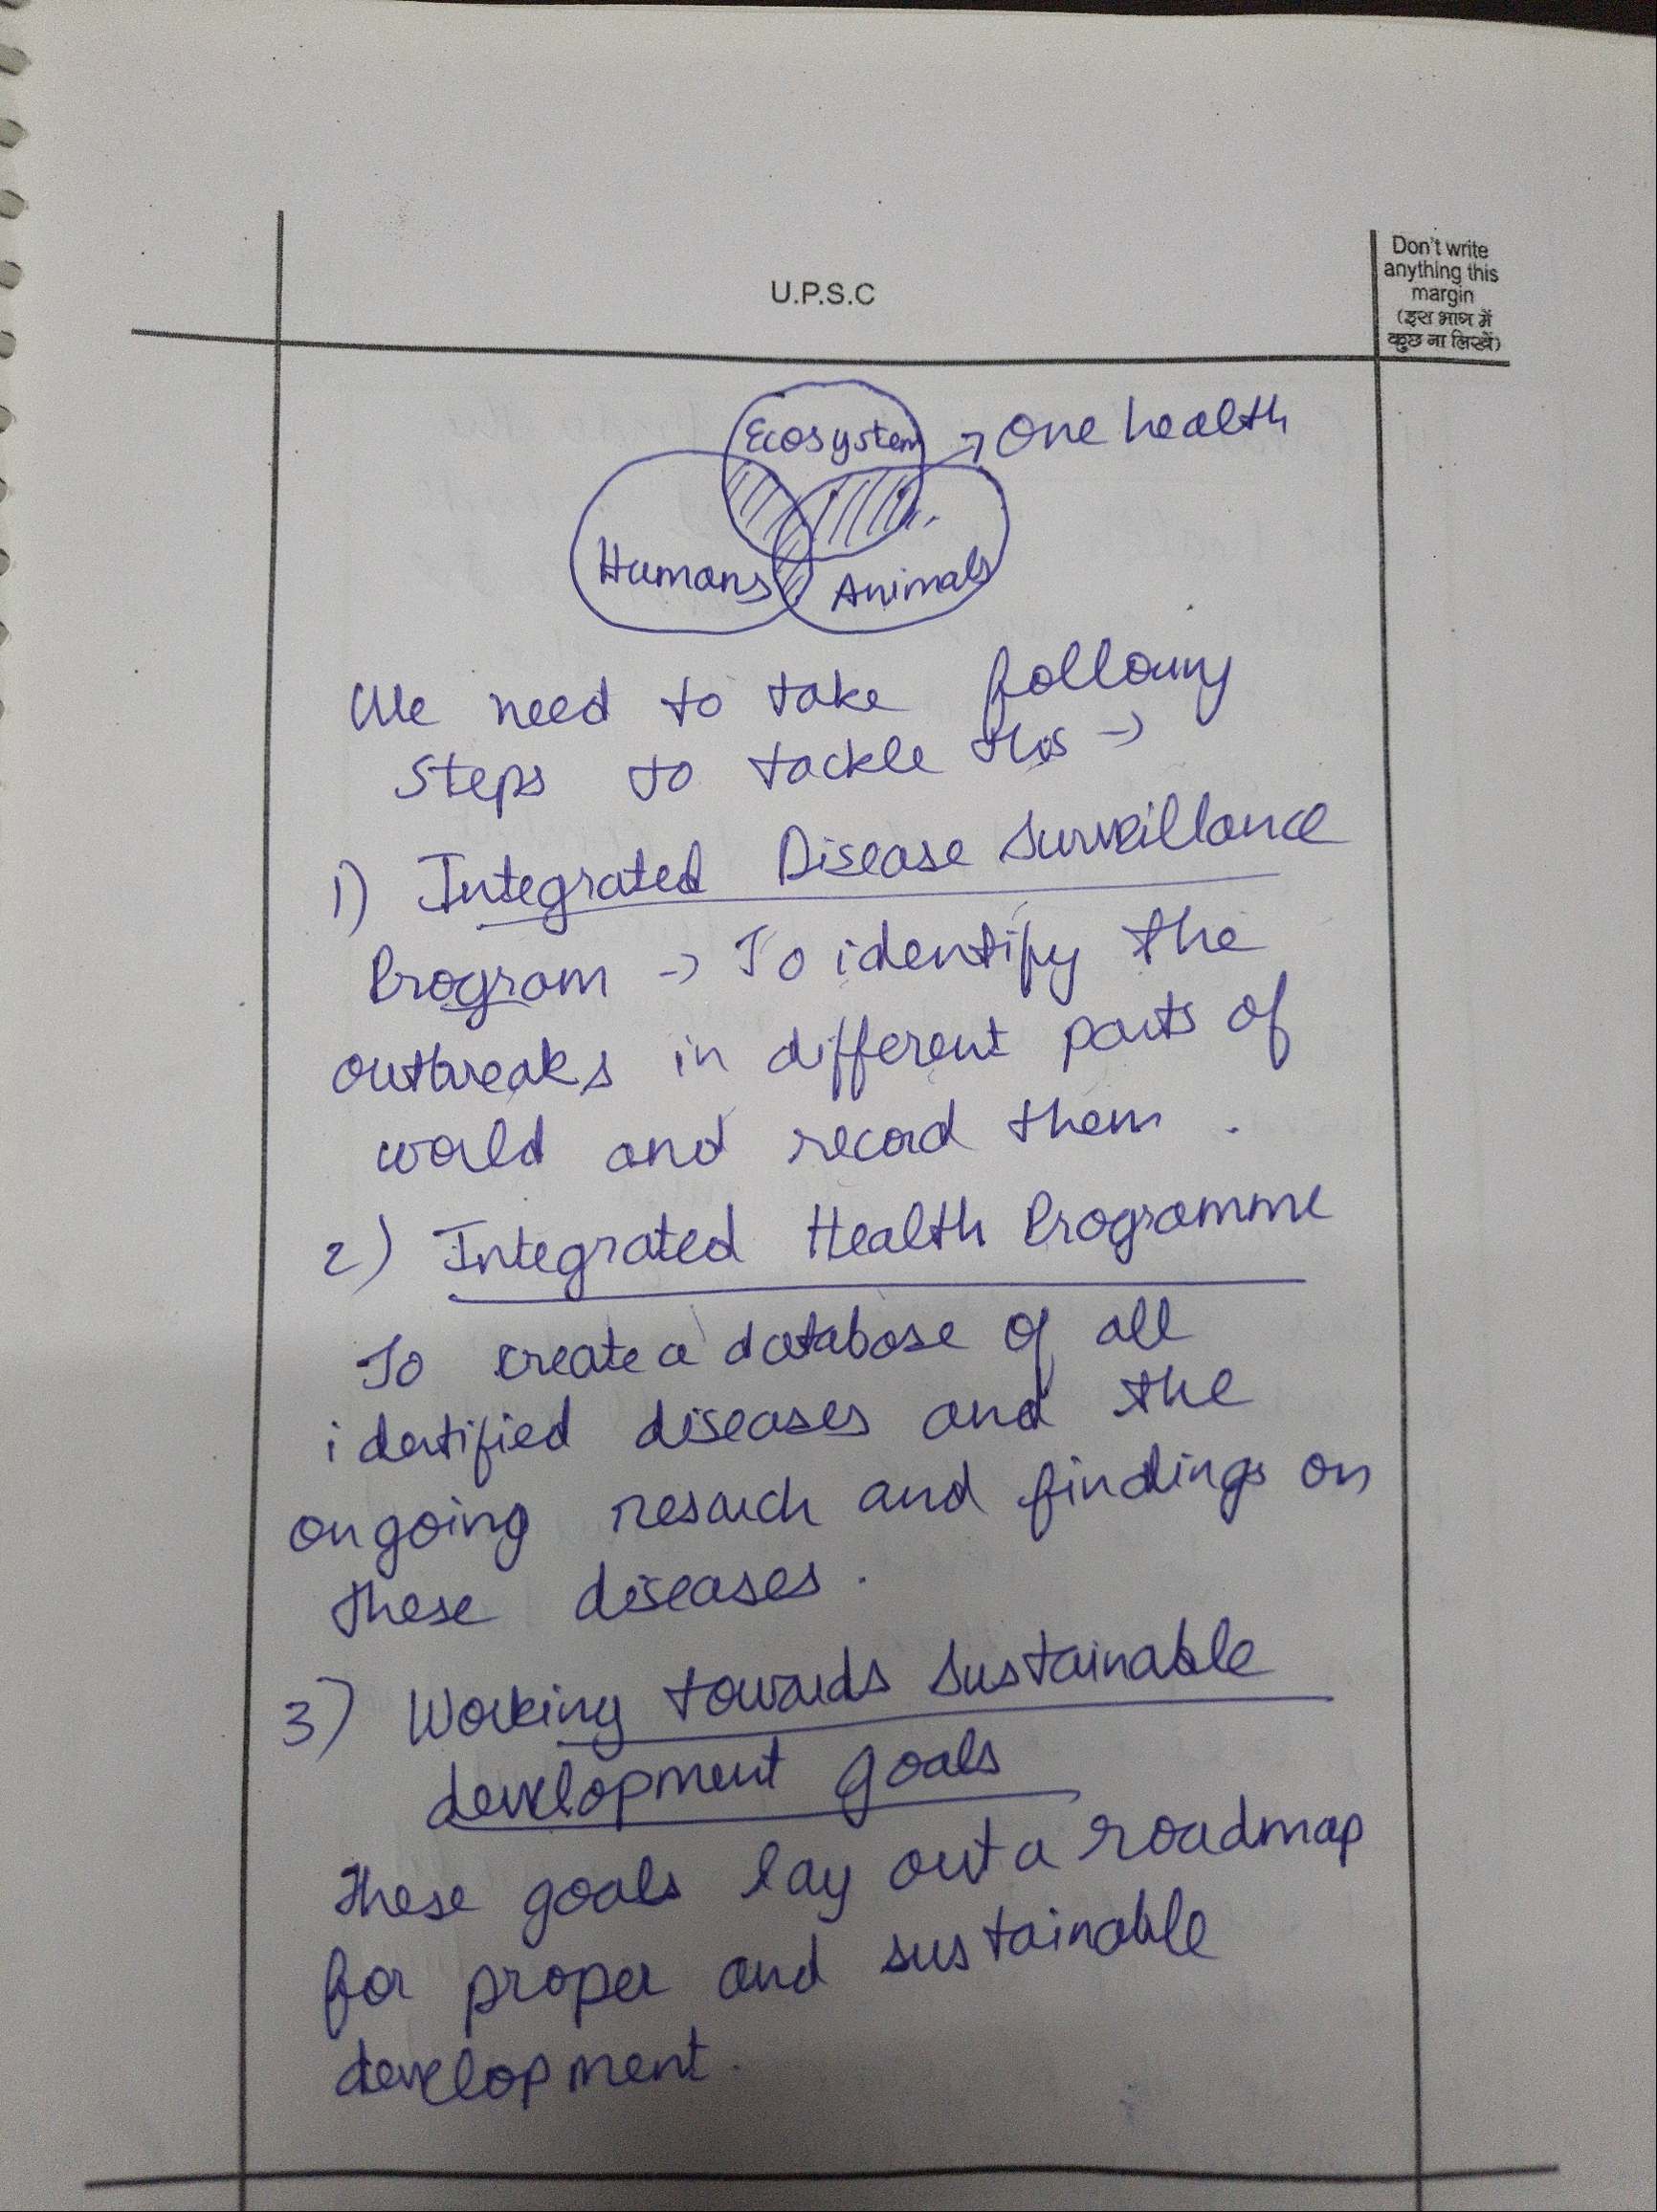 U.P.S.C
Don't write
anything this
margin
(इस भाग में
कुछ ना लिखें)
Ecosystem → One health
Humans Animals
We need to take following
steps to tackle this →
1) Integrated Disease Surveillance
Program → To identify the
outbreaks in different parts of
world and record them.
2) Integrated Health Programme
To create a database of all
identified diseases and the
ongoing research and findings on
these diseases.
3) Working towards sustainable
development goals
These goals lay out a roadmap
for proper and sustainable
development.